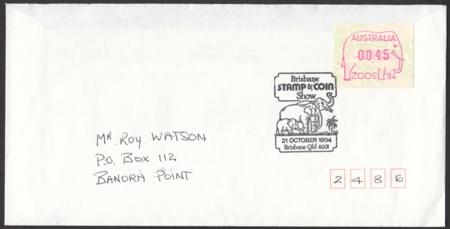 AUSTRALIA
0045
ZOOS 94
Brisbane
STAMP & COIN
Show
21 OCTOBER 1994
Brisbane Qld 4001
MR. ROY WATSON
P.O. BOX 112
BANORA POINT
2486